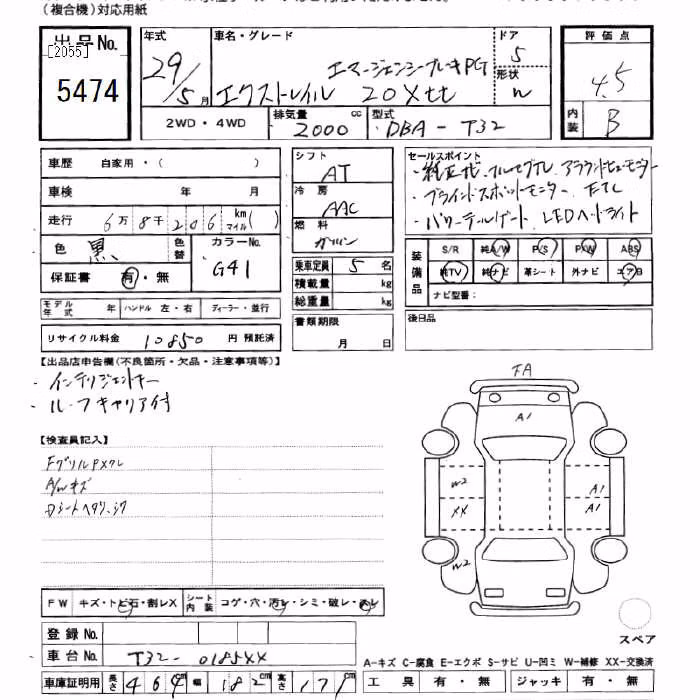 (複合機)対応用紙
出品No.
[2055]
5474
年式
29/5月
車名・グレード
エマージェンシーブレーキPG
エクストレイル 20Xtt
ドア
5
形状
W
評価点
4.5
内装
B
2WD・4WD
排気量
2000
cc
型式
DBA-T32
車歴 自家用・( )
車検 年 月
走行 6万8千206 km マイル( )
色 黒 色替
カラーNo. G41
保証書 有・無
モデル年式 年 ハンドル 左・右 ディーラー・並行
リサイクル料金 10850 円 預託済
シフト
AT
冷房
AAC
燃料
ガソリン
乗車定員 5 名
積載量 kg
総重量 kg
書類期限
月 日
セールスポイント
・純正ナビ、フルセグTV、アラウンドビューモニター
・ブラインドスポットモニター、ETC
・パワーテールゲート、LEDヘッドライト
装備品
S/R 純A/W P/S P/W ABS
純TV 純ナビ 革シート 外ナビ エアB
ナビ型番:
後日品
【出品店申告欄(不良箇所・欠品・注意事項等)】
・インテリジェントキー
・ルーフキャリア付
【検査員記入】
FグリルPXワレ
A/Wキズ
Dシートヘタリ、シワ
FW キズ・トビ石・割レX
シート内装 コゲ・穴・汚レ・シミ・破レ・スレ
登録No.
車台No. T32-0185XX
車庫証明用 長さ 464cm 幅 182cm 高さ 171cm
FA
A1
W2
XX
W2
A1
A1
スペア
A-キズ C-腐食 E-エクボ S-サビ U-凹ミ W-補修 XX-交換済
工具 有・無 ジャッキ 有・無